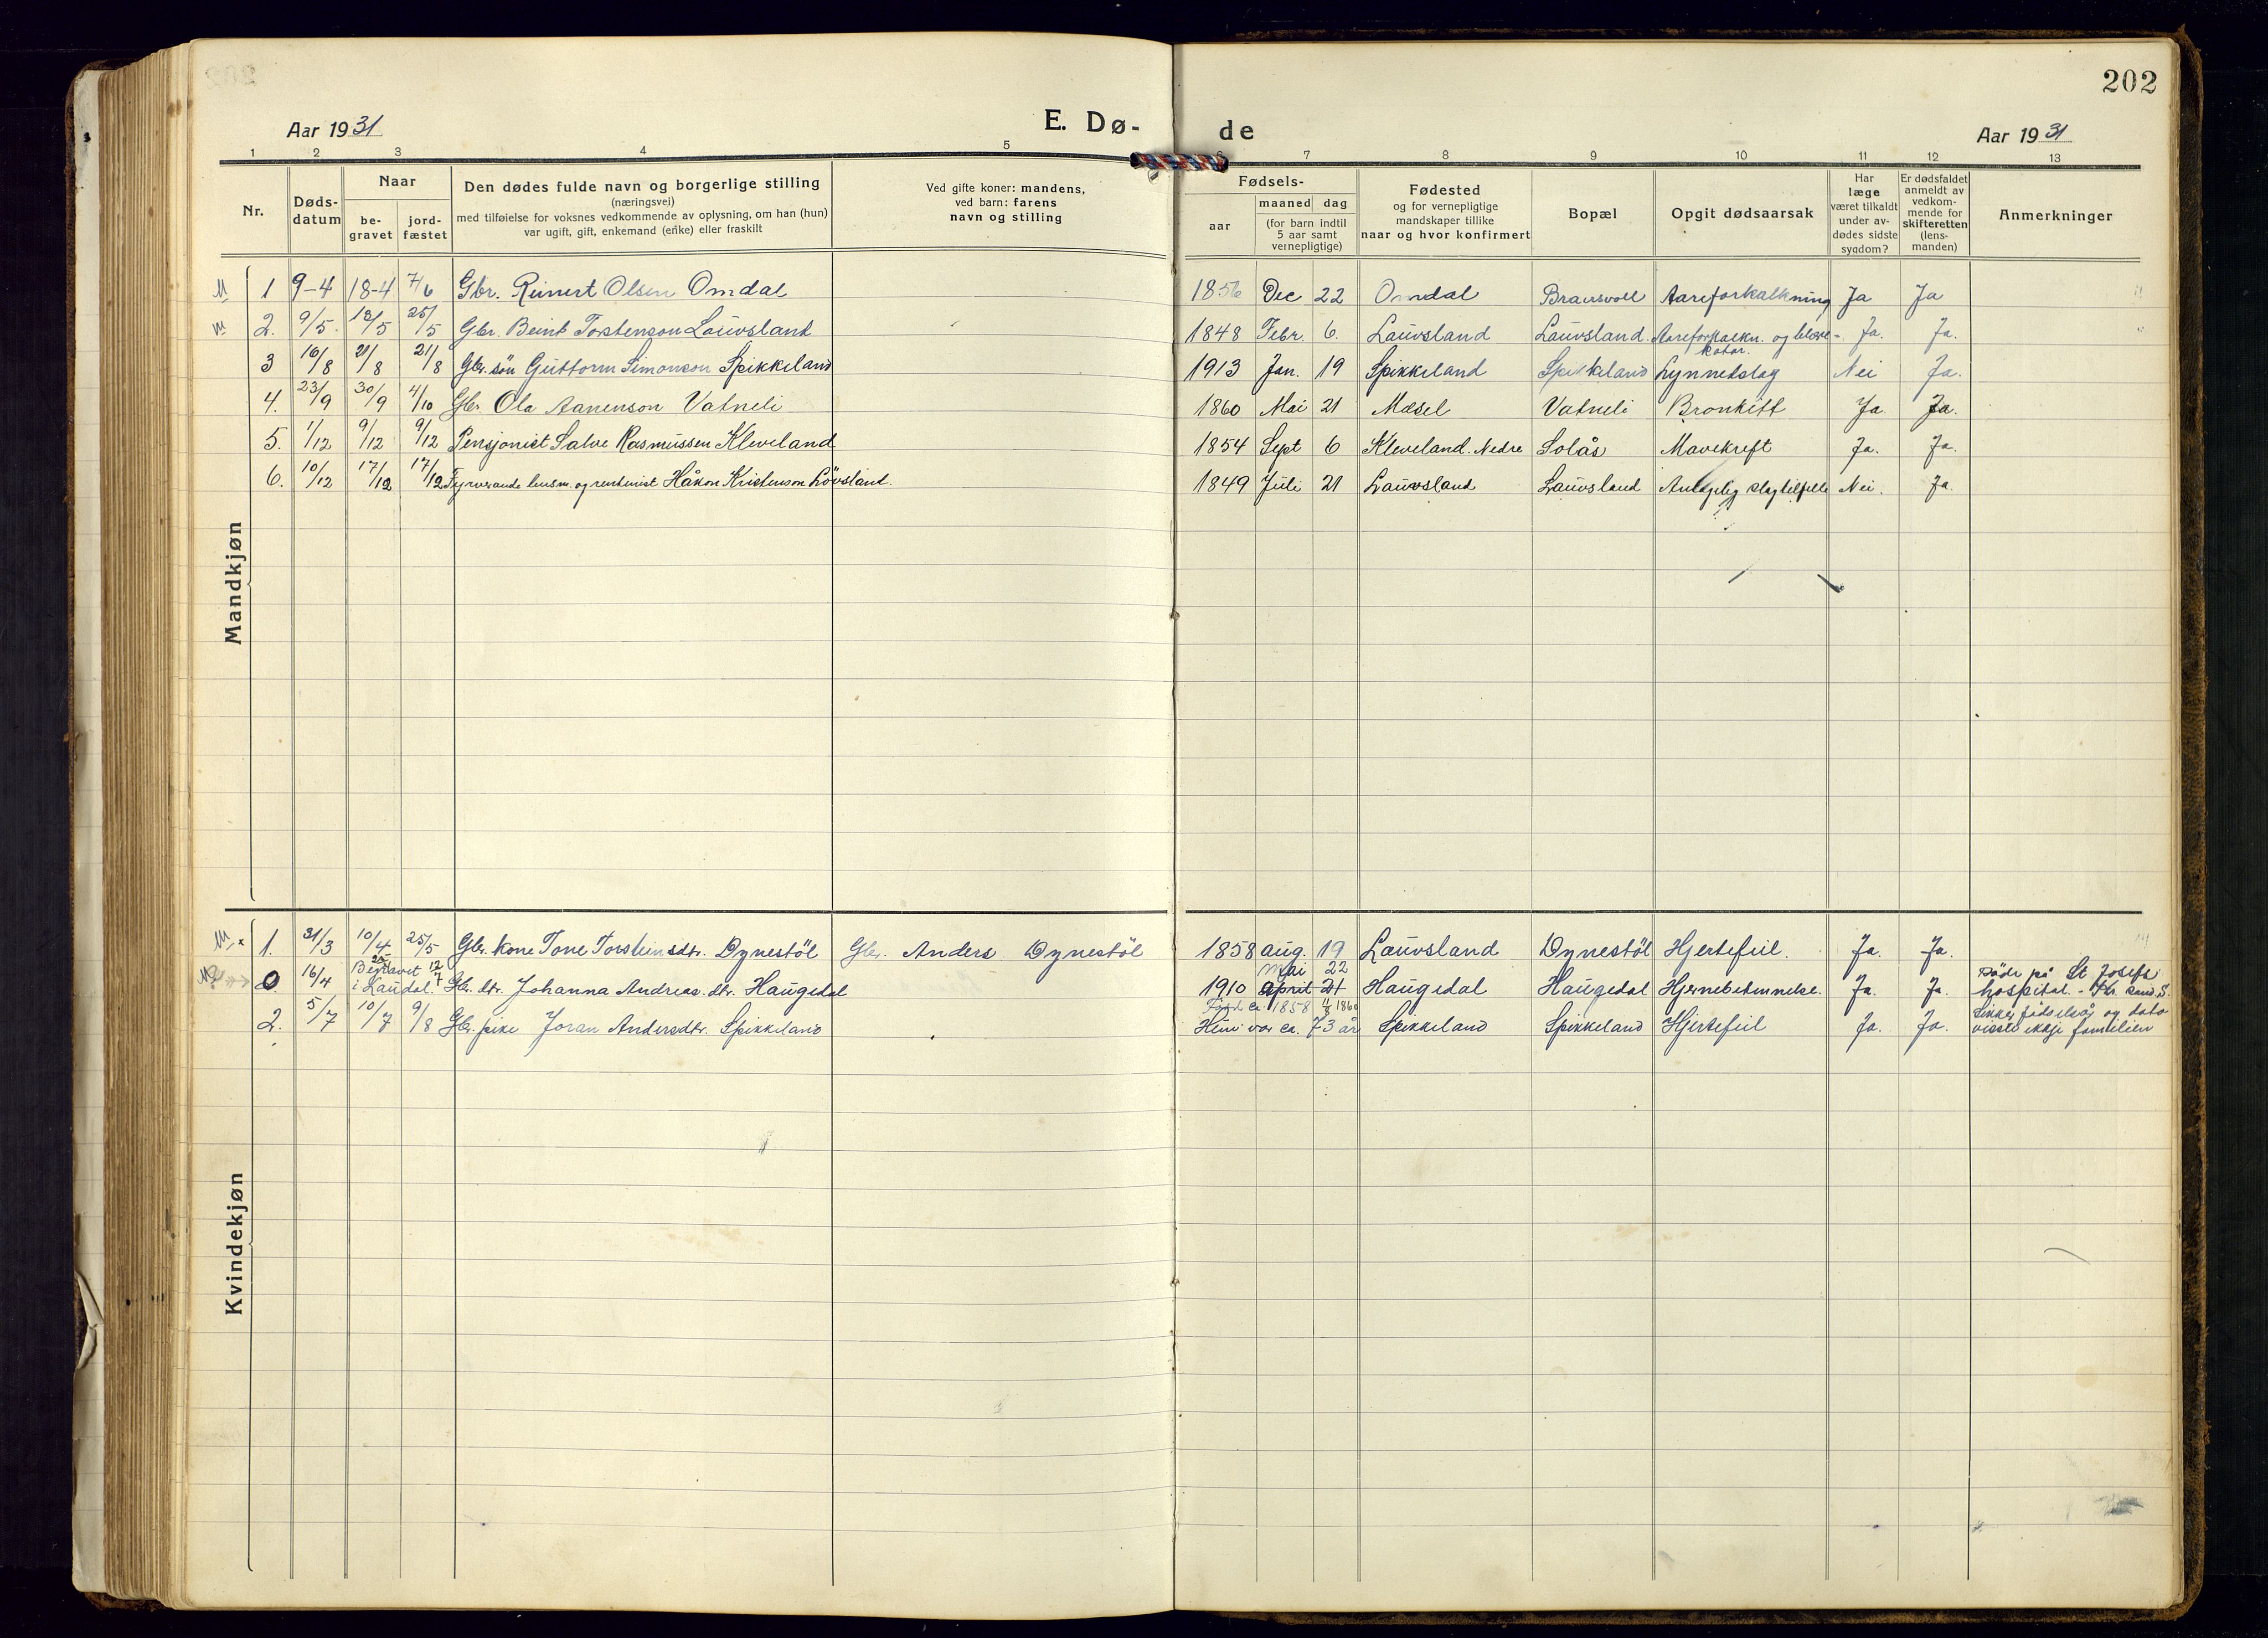 202
Aar 1931
E. Dø-
de
Aar 1931
1 2 3 4 5 6 7 8 9 10 11 12 13
Nr.
Døds-
datum
Naar
be-
gravet
jord-
fæstet
Den dødes fulde navn og borgerlige stilling
(næringsvei)
med tilføielse for voksnes vedkommende av oplysning, om han (hun)
var ugift, gift, enkemand (enke) eller fraskilt
Ved gifte koner: mandens,
ved barn: farens
navn og stilling
Fødsels-
aar
maaned dag
(for barn indtil
5 aar samt
vernepligtige)
Fødested
og for vernepligtige
mandskaper tillike
naar og hvor konfirmert
Bopæl
Opgit dødsaarsak
Har
læge
været tilkaldt
under av-
dødes sidste
sygdom?
Er dødsfaldet
anmeldt av
vedkom-
mende for
skifteretten
(lens-
manden)
Anmerkninger
Mandkjøn
M 1 9-4 18-4 7/6 Gbr. Reinert Olsen Omdal 1856 Dec 22 Omdal Brausvoll Aareforkalkning Ja Ja
M 2. 9/5. 18/5 25/5 Gbr. Beint Torstenson Lauvsland 1848 Febr. 6. Lauvsland Lauvsland. Aareforkalkn. og blære-
katar. Ja. Ja.
3 16/8 21/8 21/8 Gbr. søn Guttorm Simonson Spikkeland 1913 Jan. 19 Spikkeland Spikkeland Lynnedslag Nei Ja.
4. 23/9 30/9 4/10 Gbr. Ola Aanenson Vatneli 1860 Mai 21 Mæsel Vatneli Bronkitt Ja. Ja.
5. 1/12 9/12 9/12 Pensjonist Salve Rasmussen Kleveland 1854 Sept 6 Kleveland. Nedre Solås Mavekreft Ja. Ja.
6. 10/12 17/12 17/12 Fyrverande lensm. og rentenist Håkon Kristenson Lövsland. 1849 Juli 21 Lauvsland Lauvsland Antagelig slagtilfelle Nei. Ja.
Kvindekjøn
M. x 1. 31/3 10/4 25/5 Gbr. kone Tone Torsteinsdtr. Dynestöl Gbr. Anders Dynestöl 1858 aug. 19 Lauvsland Dynestöl Hjertefeil. Ja. Ja.
Mai 22
0 16/4 Begravet
i Laudal. Gbr. dtr. Johanna Andreas. dtr. Haugedal 1910 April 21 Haugedal Haugedal Hjernebetennelse. Ja. Ja. döde på St Josefs
hospital. - Kr. sand S.
Född ca 1858
2. 5/7 10/7 9/8 Gbr. pike Joran Andersdtr. Spikkeland Hun var ca. 73 år Spikkeland Spikkeland Hjertefeil Ja. Ja. Sikker födselsår og dato
visste ikkje familien